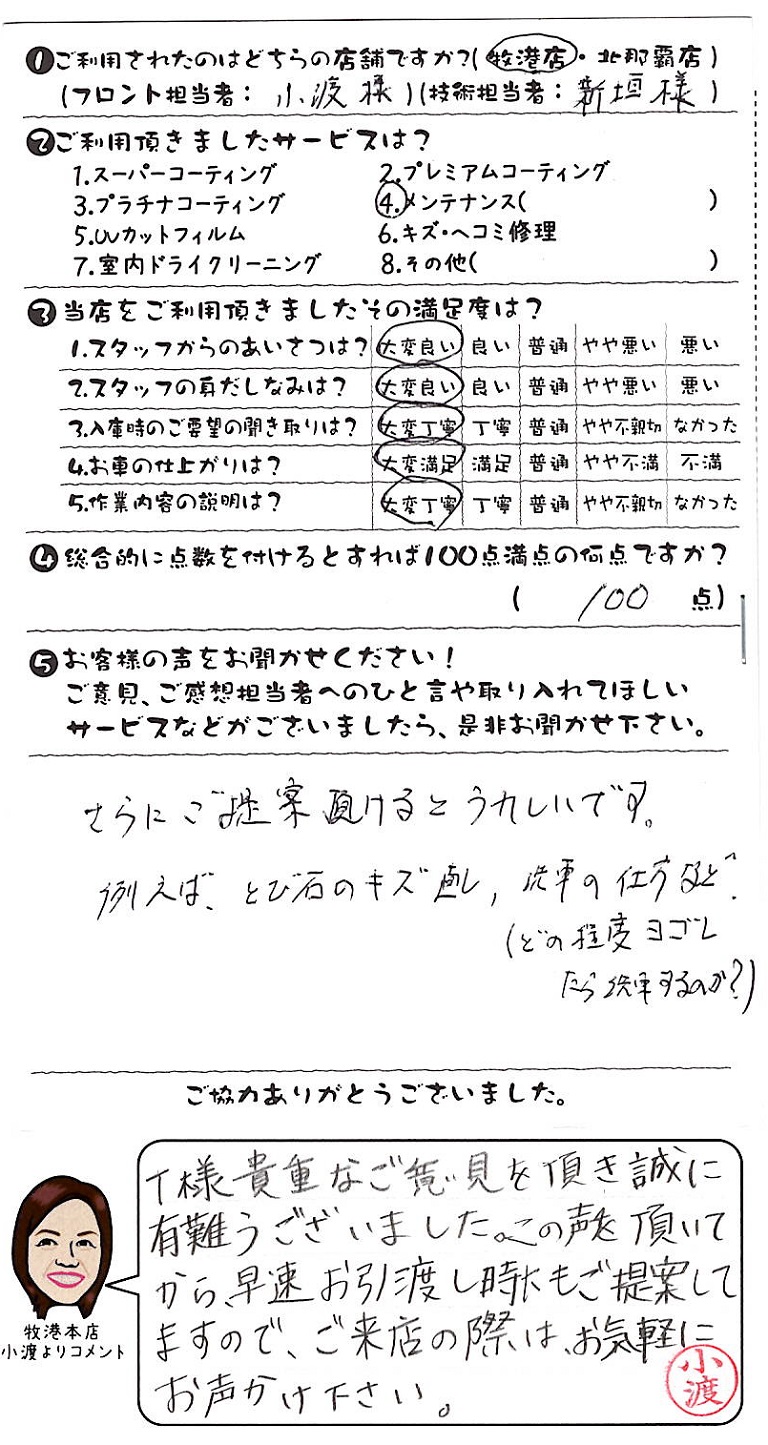 ❶ご利用されたのはどちらの店舗ですか?(牧港店・北那覇店)
(フロント担当者: 小渡 様)(技術担当者: 新垣 様)
❷ご利用頂きましたサービスは?
1.スーパーコーティング 2.プレミアムコーティング
3.プラチナコーティング 4.メンテナンス( )
5.UVカットフィルム 6.キズ・ヘコミ修理
7.室内ドライクリーニング 8.その他( )
❸当店をご利用頂きましたその満足度は?
1.スタッフからのあいさつは? 大変良い 良い 普通 やや悪い 悪い
2.スタッフの身だしなみは? 大変良い 良い 普通 やや悪い 悪い
3.入庫時のご要望の聞き取りは? 大変丁寧 丁寧 普通 やや不親切 なかった
4.お車の仕上がりは? 大変満足 満足 普通 やや不満 不満
5.作業内容の説明は? 大変丁寧 丁寧 普通 やや不親切 なかった
❹総合的に点数を付けるとすれば100点満点の何点ですか?
( 100 点)
❺お客様の声をお聞かせください!
ご意見、ご感想担当者へのひと言や取り入れてほしい
サービスなどがございましたら、是非お聞かせ下さい。
さらにご提案頂けるとうれしいです。
例えば、とび石のキズ直し, 洗車の仕方など.
(どの程度ヨゴレ
たら洗車するのか?)
ご協力ありがとうございました。
T様貴重なご意見を頂き誠に
有難うございました。この声を頂いて
から、早速お引渡し時にもご提案して
ますので、ご来店の際は、お気軽に
お声かけ下さい。
小渡
牧港本店
小渡よりコメント